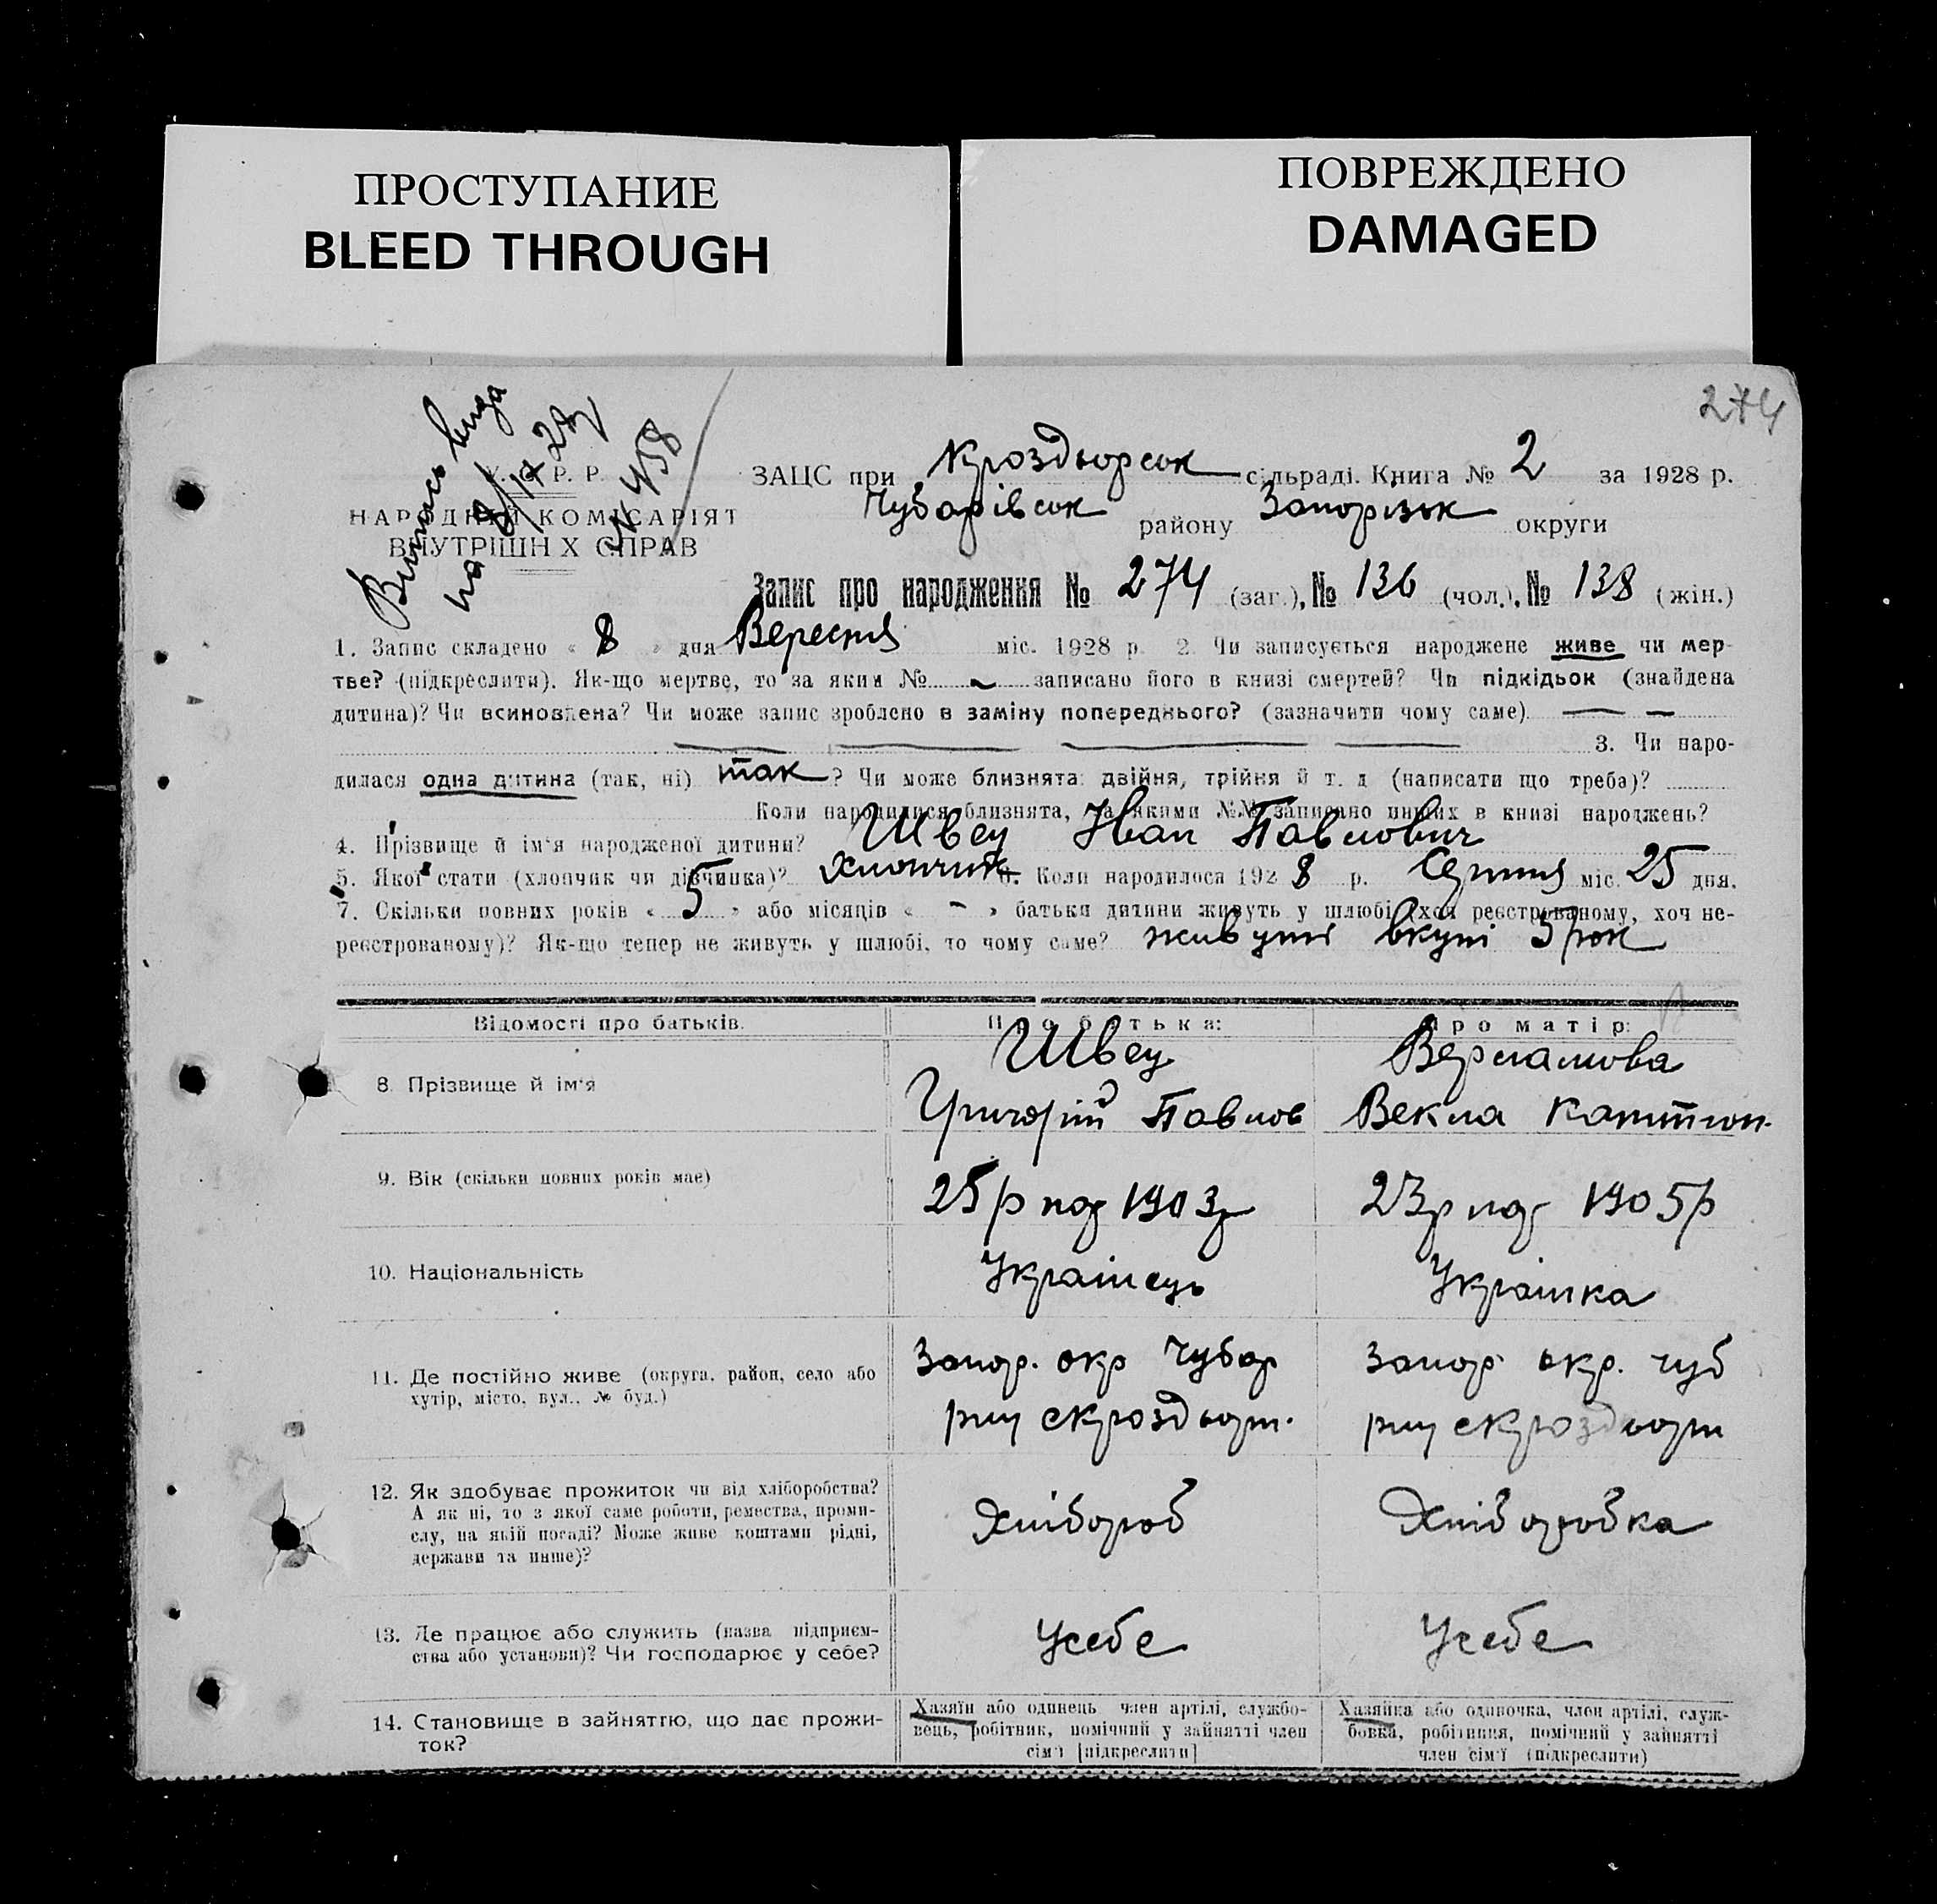 ПРОСТУПАНИЕ
BLEED THROUGH
ПОВРЕЖДЕНО
DAMAGED
274
Випись вида
на 8/IX 28р
№ 458
У.С.Р.Р.
НАРОДНІЙ КОМІСАРІЯТ
ВНУТРІШН Х СПРАВ
ЗАЦС при Кроздворськ сільраді. Книга № 2 за 1928 р.
Чубарівськ району Запорізьк округи
Запис про народження № 274 (заг.), № 136 (чол.), № 138 (жін.)
1. Запис складено « 8 » дня Вересня міс. 1928 р. 2. Чи записується народжене живе чи мер-
тве? (підкреслити). Як-що мертве, то за яким № записано його в книзі смертей? Чи підкідьок (знайдена
дитина)? Чи всиновлена? Чи може запис зроблено в заміну попереднього? (зазначити чому саме)
3. Чи наро-
дилася одна дитина (так, ні) так? Чи може близнята: двійня, трійня й т. д (написати що треба)?
Коли народилися близнята, за якими №№ записано инших в книзі народжень?
4. Прізвище й ім'я народженої дитини? Швец Иван Павлович
5. Якої стати (хлопчик чи дівчинка)? Хлопчик 6. Коли народилося 1928 р. Серпня міс. 25 дня.
7. Скільки повних років « 5 » або місяців « - » батьки дитини живуть у шлюбі (хоч реєстрованому, хоч не-
реєстрованому)? Як-що тепер не живуть у шлюбі, то чому саме? живуть вкупі 5 рок
Відомості про батьків.
Про батька:
Про матір:
8. Прізвище й ім'я
Швец
Григорій Павлов
Векла
9. Вік (скільки повних років має)
25 р нар 1903 р
23 р нар 1905 р
10. Національність
Українець
Українка
11. Де постійно живе (округа, район, село або
хутір, місто, вул., № буд.)
Запор. окр Чубар
рну с Кроздворт.
Запор окр. чуб
рну с Кроздворт
12. Як здобуває прожиток чи від хліборобства?
А як ні, то з якої саме роботи, ремества, проми-
слу, на якій посаді? Може живе коштами рідні,
держави та инше)?
Хлібороб
Хліборобка
13. Де працює або служить (назва підприєм-
ства або установи)? Чи господарює у себе?
Усебе
Усебе
14. Становище в зайняттю, що дає прожи-
ток?
Хазяїн або одинець член артілі, службо-
вець, робітник, помічний у зайнятті член
сім'ї [підкреслити]
Хазяйка або одиночка, член артілі, служ-
бовка, робітниця, помічний у зайнятті
член сім'ї (підкреслити)